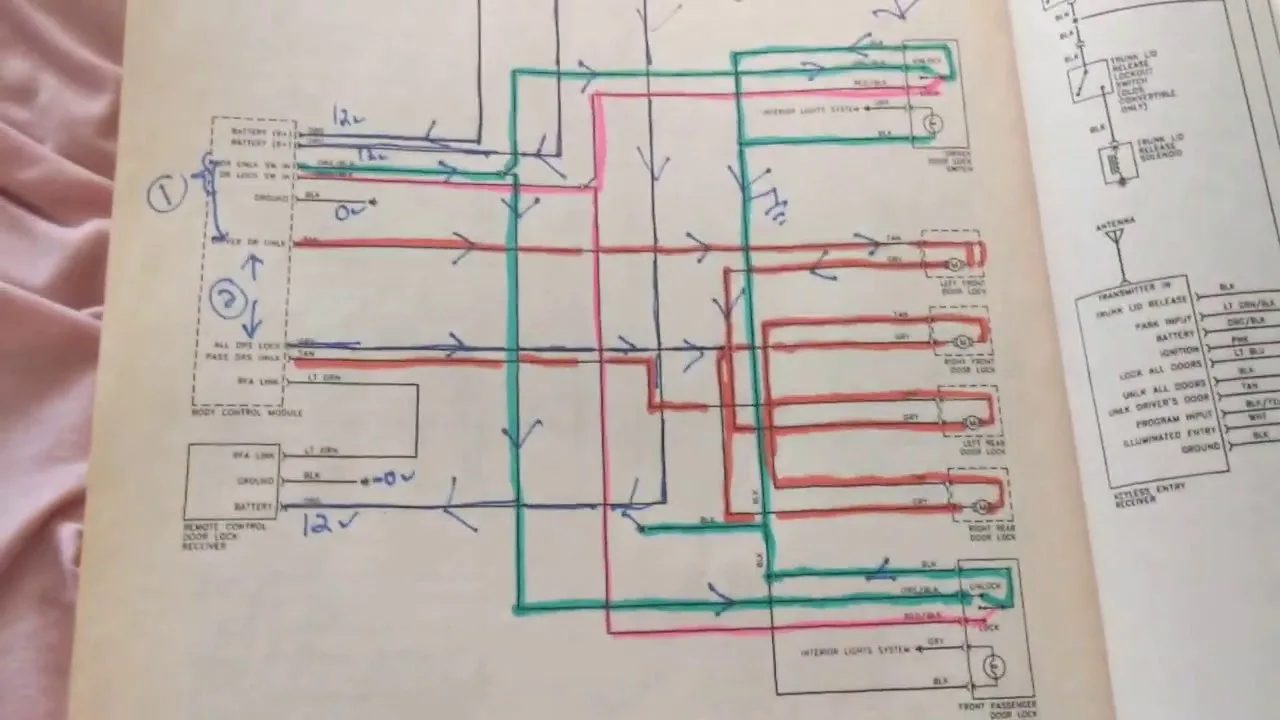 BLK
UNLOCK
ORG/BLK
RED/BLK
LOCK
INTERIOR LIGHTS SYSTEM
GRY
BLK
DRIVER
DOOR LOCK
SWITCH
12v
BATTERY (B+)
ORG
BATTERY (B+)
ORG
12v
DR UNLK SW IN
ORG/BLK
DR LOCK SW IN
RED/BLK
1
GROUND
BLK
0v
DRIVER DR UNLK
TAN
TAN
GRY
M
LEFT FRONT
DOOR LOCK
2
TAN
GRY
M
RIGHT FRONT
DOOR LOCK
ALL DRS LOCK
GRY
PASS DRS UNLK
TAN
RFA LINK
LT GRN
BODY CONTROL MODULE
GRY
M
LEFT REAR
DOOR LOCK
RFA LINK
LT GRN
GROUND
BLK
0v
BATTERY
ORG
12v
REMOTE CONTROL
DOOR LOCK
RECEIVER
GRY
M
RIGHT REAR
DOOR LOCK
BLK
BLK
BLK
BLK
UNLOCK
ORG/BLK
RED/BLK
LOCK
INTERIOR LIGHTS SYSTEM
GRY
BLK
FRONT PASSENGER
DOOR LOCK
BLK
BLK
BLK
TRUNK LID
RELEASE
LOCKOUT
SWITCH
(OLDS
CONVERTIBLE
ONLY)
BLK
TRUNK LID
RELEASE
SOLENOID
ANTENNA
TRANSMITTER IN
TRUNK LID RELEASE
BLK
PARK INPUT
LT GRN/BLK
BATTERY
ORG/BLK
IGNITION
PNK
LOCK ALL DOORS
LT BLU
UNLK ALL DOORS
BLK
UNLK DRIVER'S DOOR
TAN
PROGRAM INPUT
ILLUMINATED ENTRY
WHT
GROUND
BLK
KEYLESS ENTRY
RECEIVER